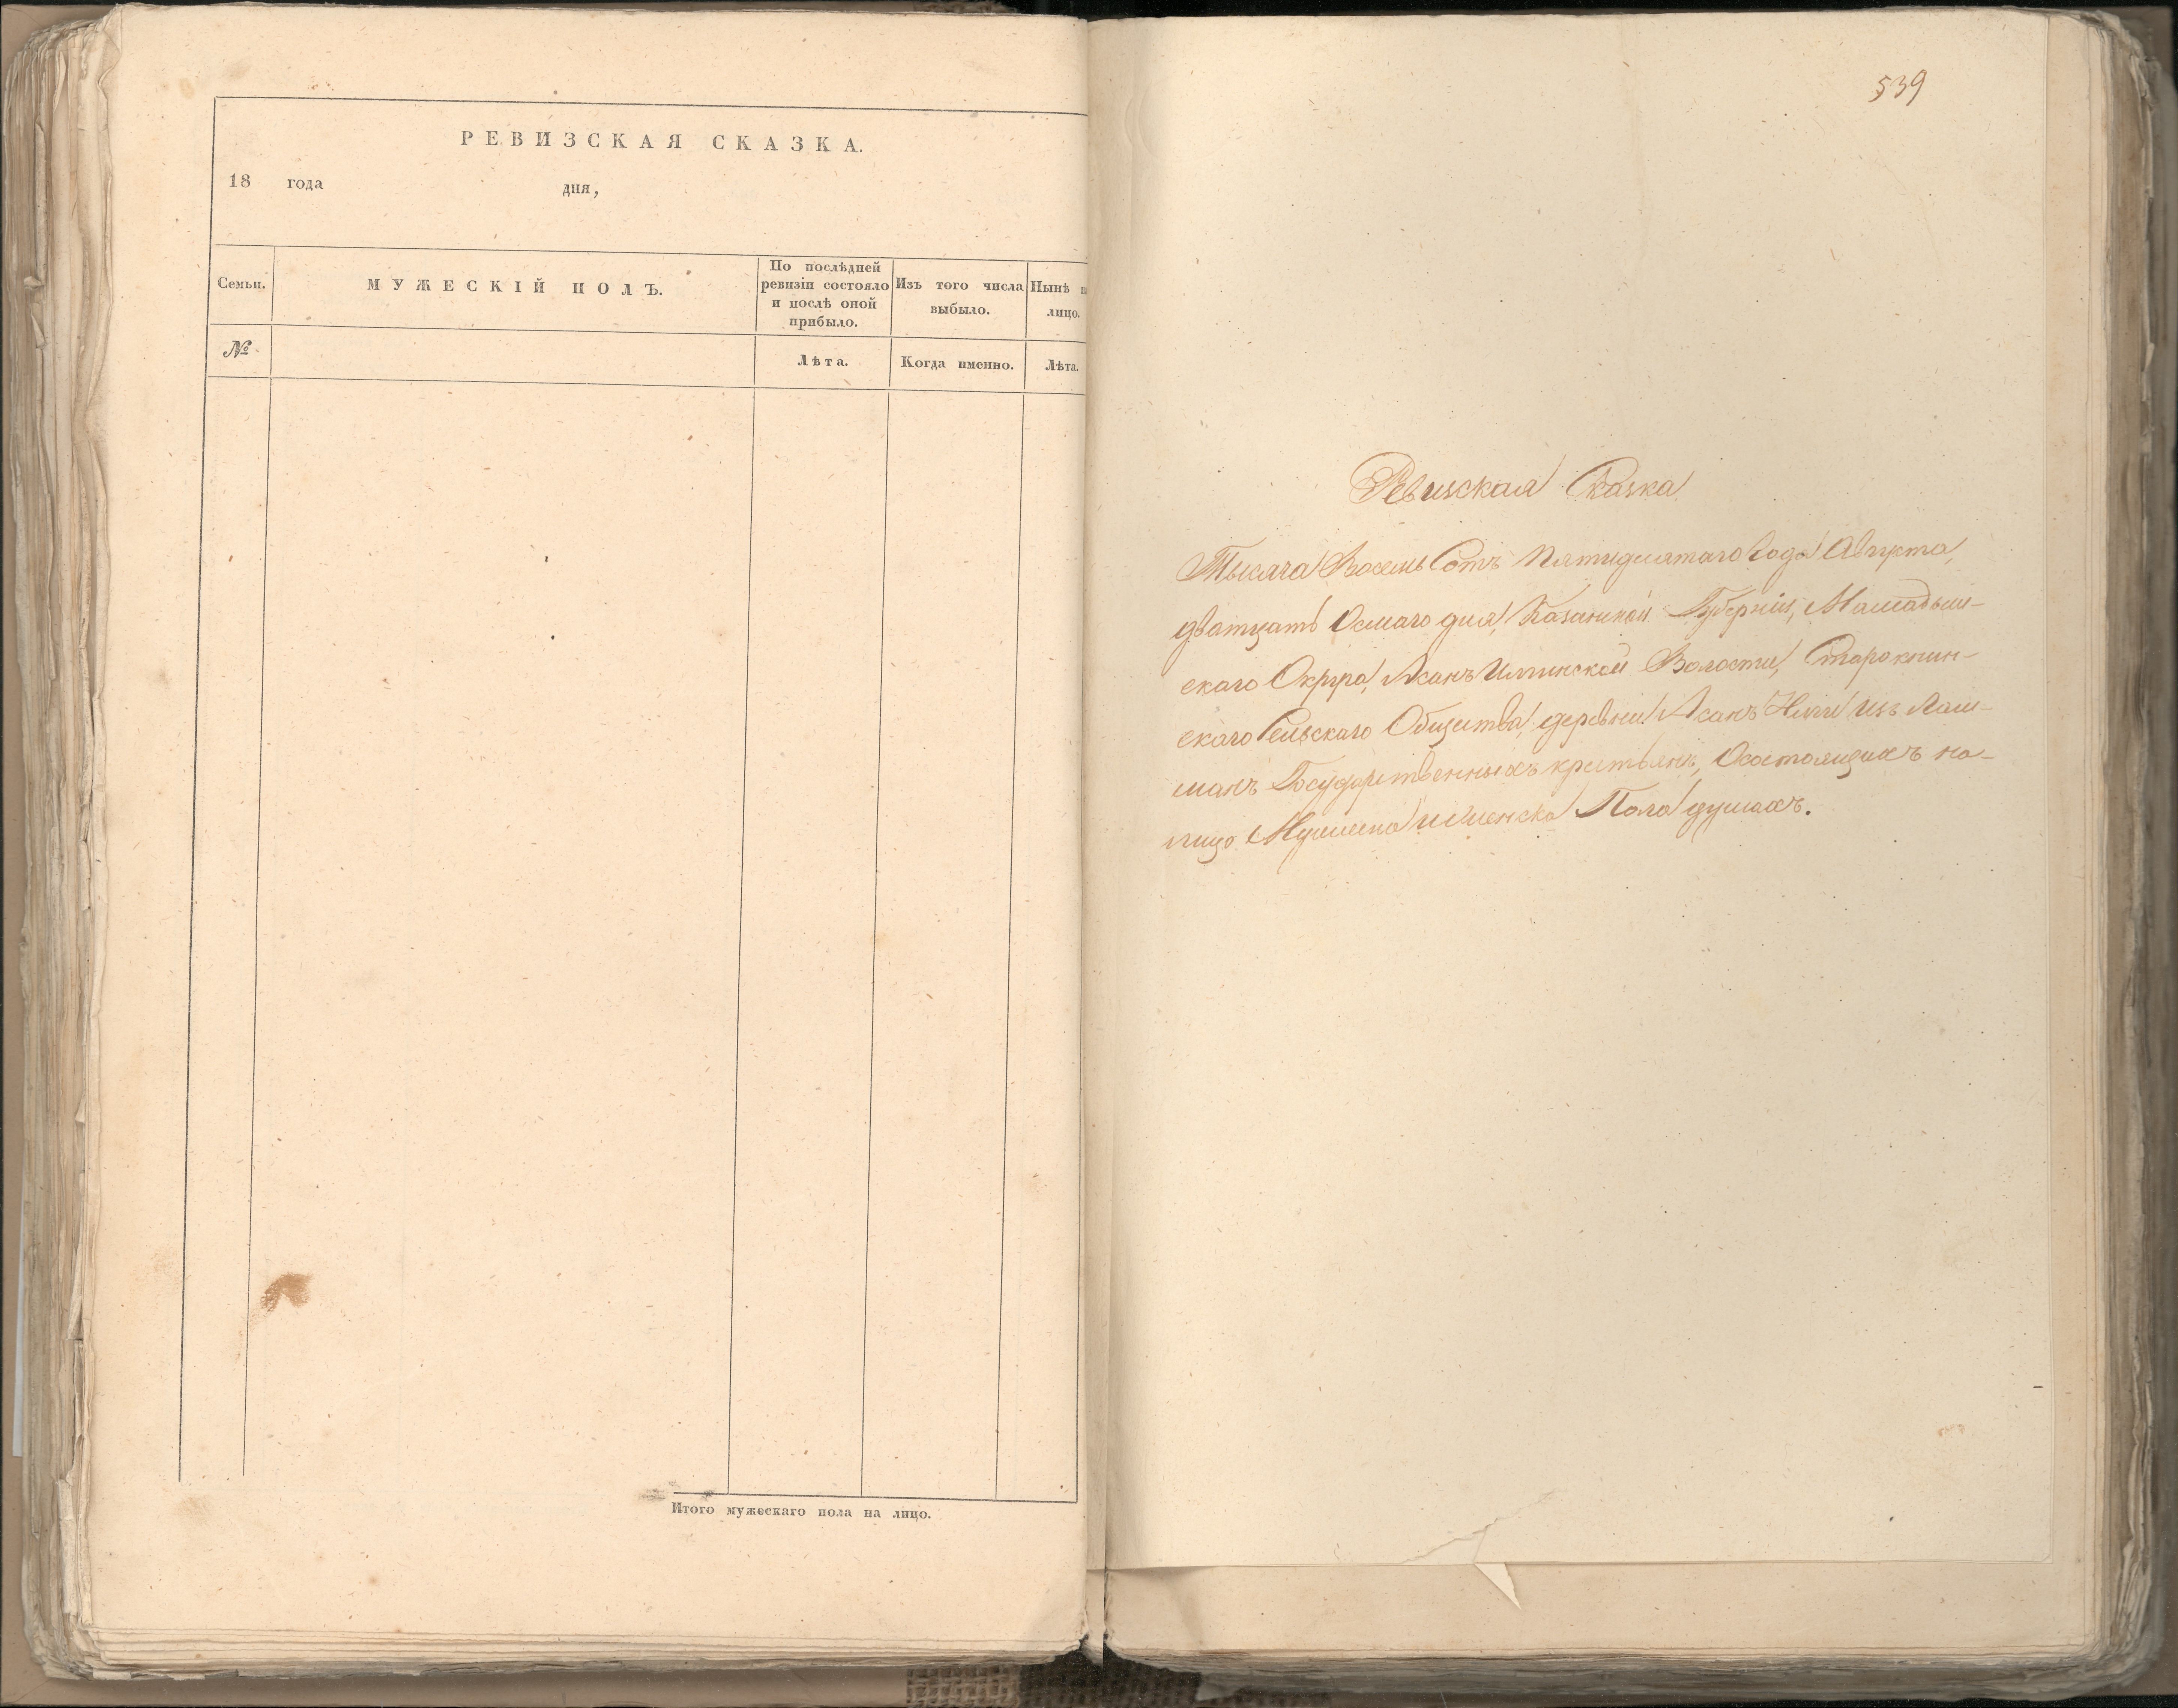 РЕВИЗСКАЯ СКАЗКА.
18 года дня,
Семьи.
МУЖЕСКІЙ ПОЛЪ.
По послѣдней
ревизіи состояло
и послѣ оной
прибыло.
Изъ того числа
выбыло.
Нынѣ
лицо.
№
Лѣта.
Когда именно.
Лѣта.
Итого мужескаго пола на лицо.
539
Ревизская Сказка
Тысяча Восемь Сотъ Пятидесятаго Года Августа,
дватцать Осмаго дня, Казанской Губерніи, Мамадыш-
скаго Округа, Волости,
скаго Сельскаго Общества, деревни изъ Лаш-
манъ Государственныхъ крестьянъ, Осостоящихъ на-
лицо Мужеска и Женска Пола душахъ.